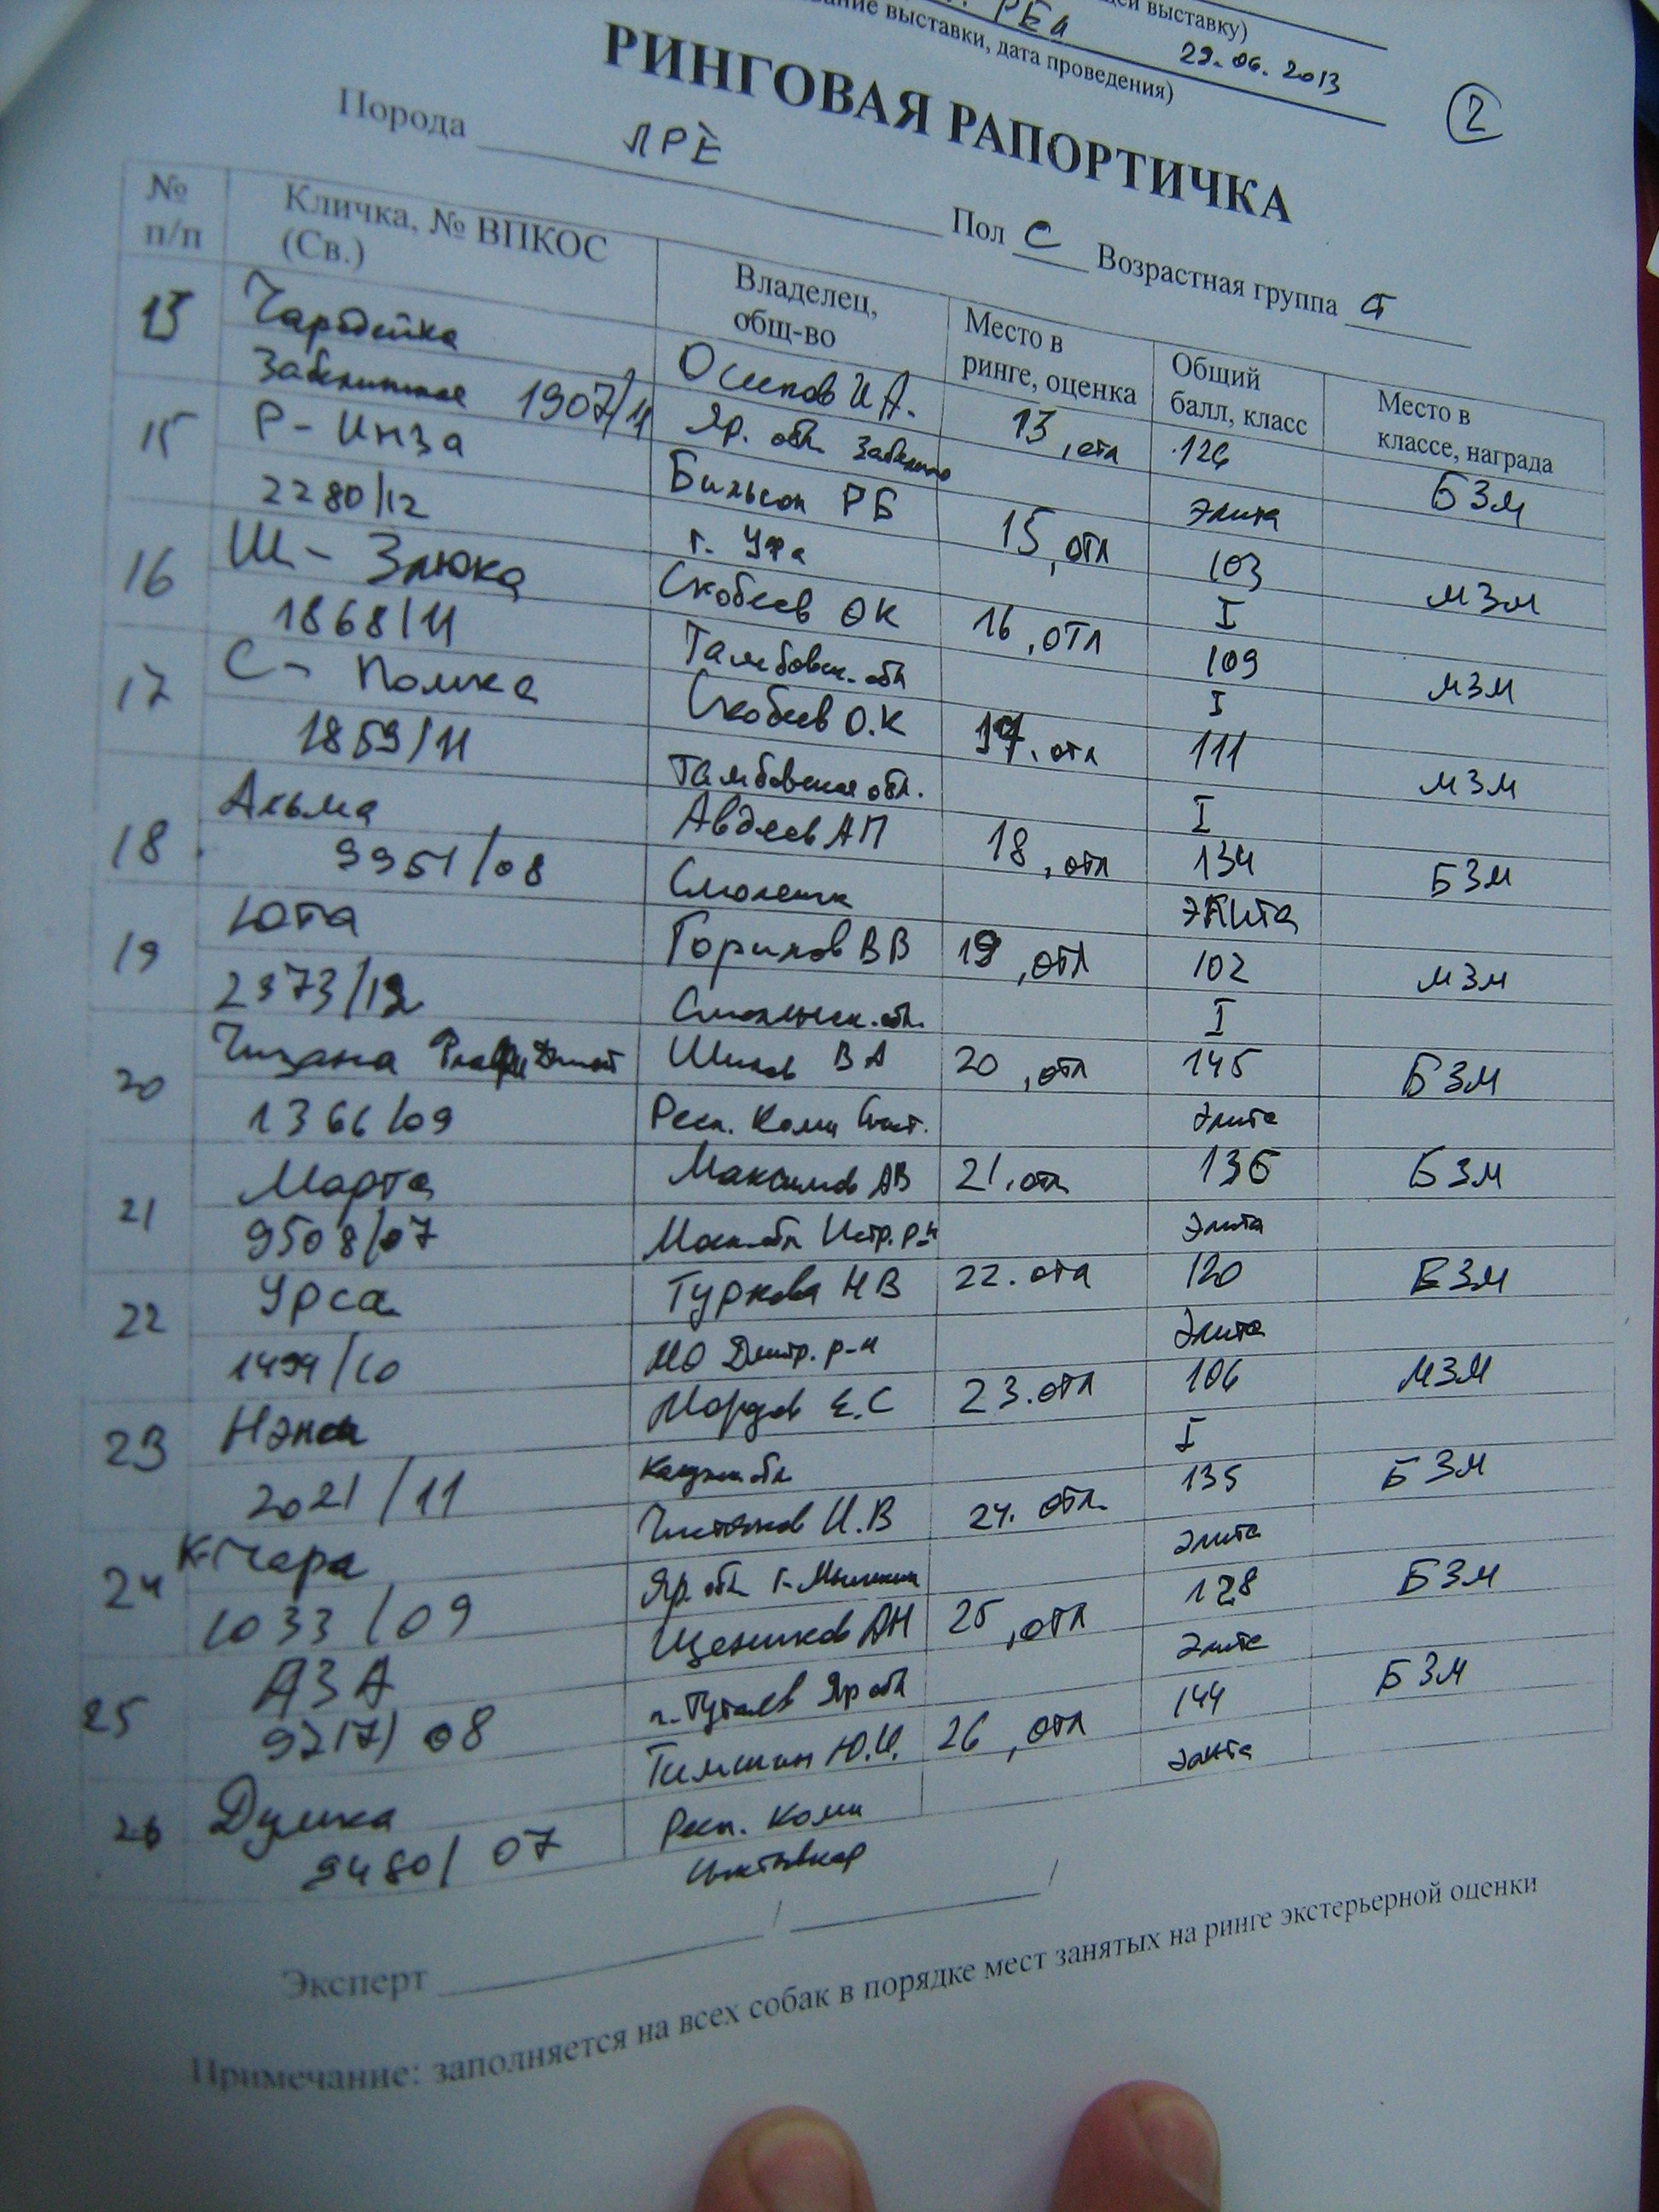 выставку)
РЕЛ 29.06.2013
выставки, дата проведения)
2
РИНГОВАЯ РАПОРТИЧКА
Порода ЛРЕ Пол С Возрастная группа
№ п/п Кличка, № ВПКОС (Св.) Владелец, общ-во Место в ринге, оценка Общий балл, класс Место в классе, награда
13 Чародейка Осипов И А. 13, отл 126 БЗМ
1907/11 Яр. обл. Элита
15 Р-Инза РБ 15, отл 103 МЗМ
2280/12 г. Уфа I
16 Ш-Злюка Скобеев ОК 16, отл 109 МЗМ
1868/11 Тамбовск. обл I
17 С- Помка Скобеев О.К 17. отл 111 МЗМ
1859/11 Тамбовская обл. I
18 Альма Авдеев АП 18, отл 134 БЗМ
9951/08 Смоленск Элита
19 Юта Горилов ВВ 19, отл 102 МЗМ
2973/12 Смоленск. обл. I
20 ВА 20, отл 145 БЗМ
1366/09 Респ. Коми Элита
21 Марта Максимов АВ 21. отл 136 БЗМ
9508/07 Моск. обл Истр. р-н Элита
22 Урса Туркова НВ 22. отл 120 БЗМ
1494/10 МО Дмитр. р-н Элита
23 Нэнси Е.С 23. отл 106 МЗМ
2021/11 I
24 К-Чара Чистяков И.В 24. отл. 135 БЗМ
1033/09 Яр. обл г. Мышкин Элита
25 АЗА Щеников АН 25, отл 128 БЗМ
9217/08 г. Тутаев Яр обл Элита
26 Думка Тимшин Ю.И. 26, отл 144 БЗМ
9480/07 Респ. Коми Элита
Сыктывкар
Эксперт / /
Примечание: заполняется на всех собак в порядке мест занятых на ринге экстерьерной оценки